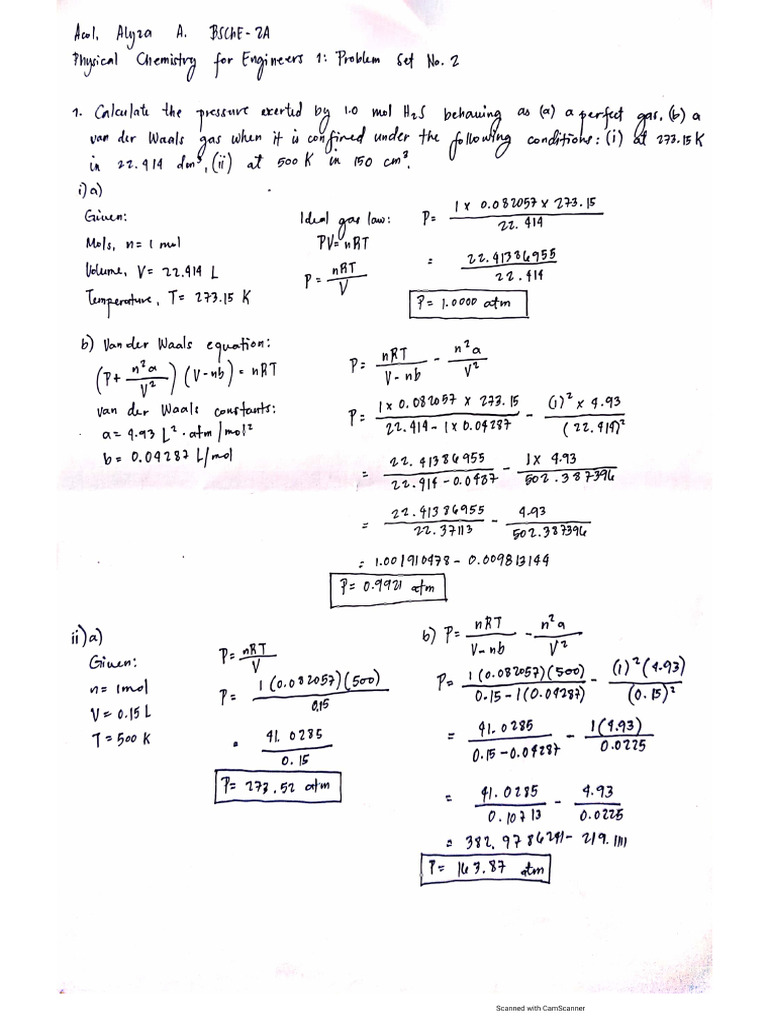 Acol, Alyza A. BSChE-2A
Physical Chemistry for Engineers 1: Problem Set No. 2
1. Calculate the pressure exerted by 1.0 mol H₂S behaving as (a) a perfect gas, (b) a
van der Waals gas when it is confined under the following conditions: (i) at 273.15 K
in 22.414 dm³, (ii) at 500 K in 150 cm³.
i) a)
Given:
Mols, n = 1 mol
Volume, V = 22.414 L
Temperature, T = 273.15 K
Ideal gas law:
PV = nRT
P = nRT / V
P = 1 x 0.082057 x 273.15 / 22.414
= 22.41386955 / 22.414
P = 1.0000 atm
b) Van der Waals equation:
(P + n²a / V²) (V - nb) = nRT
van der Waals constants:
a = 4.93 L² · atm / mol²
b = 0.04287 L/mol
P = nRT / V - nb - n²a / V²
P = 1 x 0.082057 x 273.15 / 22.414 - 1 x 0.04287 - (1)² x 4.93 / (22.414)²
= 22.41386955 / 22.414 - 0.0427 - 1 x 4.93 / 502.387396
= 22.41386955 / 22.37113 - 4.93 / 502.387396
= 1.001910478 - 0.009813144
P = 0.9921 atm
ii) a)
Given:
n = 1 mol
V = 0.15 L
T = 500 K
P = nRT / V
P = 1 (0.082057)(500) / 0.15
= 41.0285 / 0.15
P = 273.52 atm
b) P = nRT / V - nb - n²a / V²
P = 1 (0.082057)(500) / 0.15 - 1(0.04287) - (1)² (4.93) / (0.15)²
= 41.0285 / 0.15 - 0.04287 - 1(4.93) / 0.0225
= 41.0285 / 0.10713 - 4.93 / 0.0225
= 382.9786241 - 219.111
P = 163.87 atm
Scanned with CamScanner